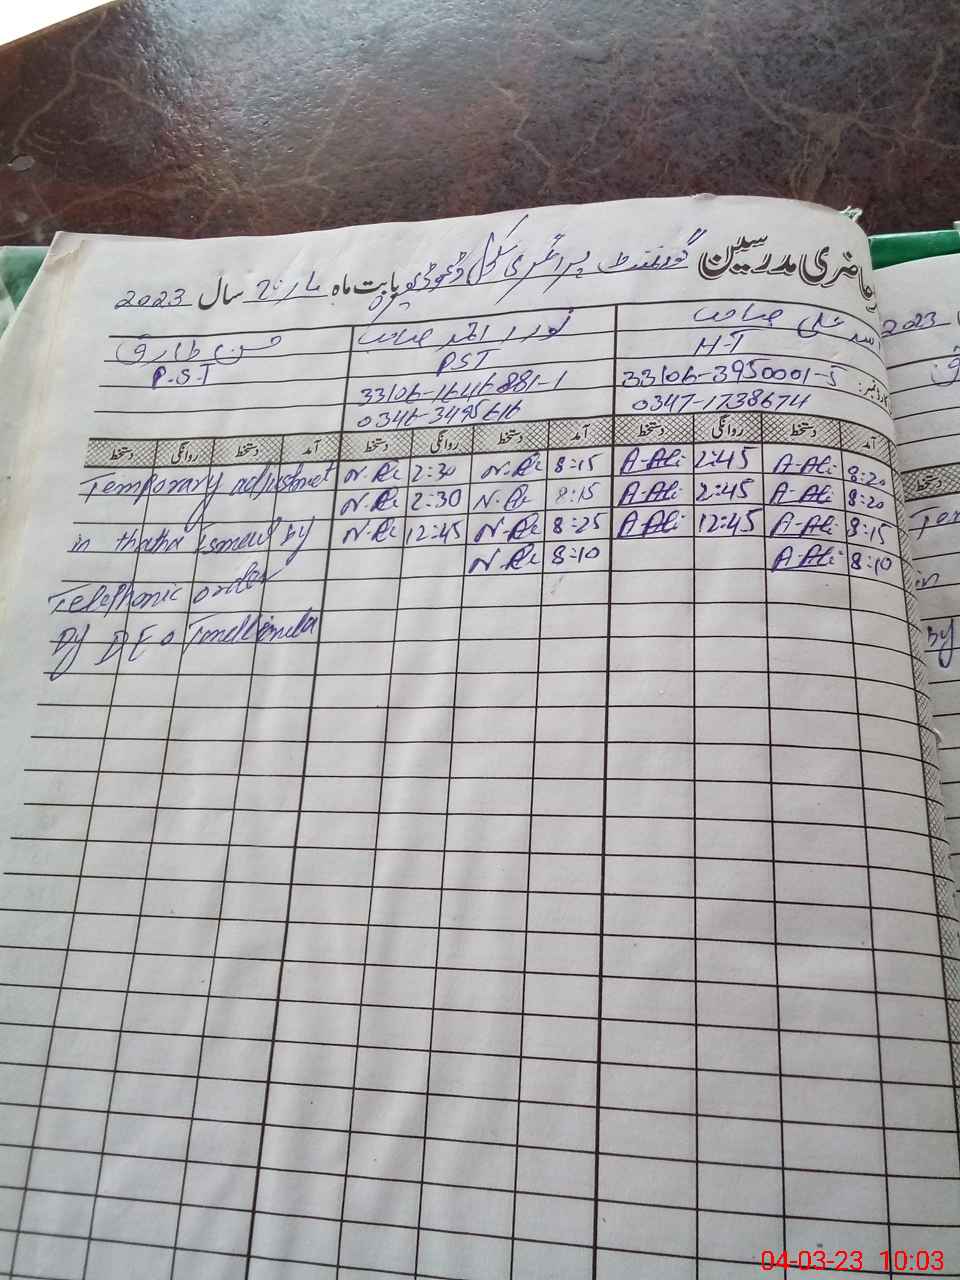 حاضری مدرسین گورنمنٹ پرائمری سکول بابت ماہ مارچ سال 2023
علی صاحب
نور احمد صاحب
حسن طارق
H-T
PST
P.S.T
33106-3950001-5
33106-1646881-1
0347-1738674
0346-3495616
آمد دستخط روانگی دستخط آمد دستخط روانگی دستخط آمد دستخط روانگی دستخط
8:20 A-Ali 2:45 A-Ali 8:15 N.Ah 2:30 N.Ah
8:20 A-Ali 2:45 A-Ali 8:15 N.Ah 2:30 N.Ah
8:15 A-Ali 12:45 A-Ali 8:25 N.Ah 12:45 N.Ah
8:10 A-Ali 8:10 N.Ah
Temporary adjustment
in by
Telephonic order
By DEO
2023
دستخط
in
By
04-03-23 10:03